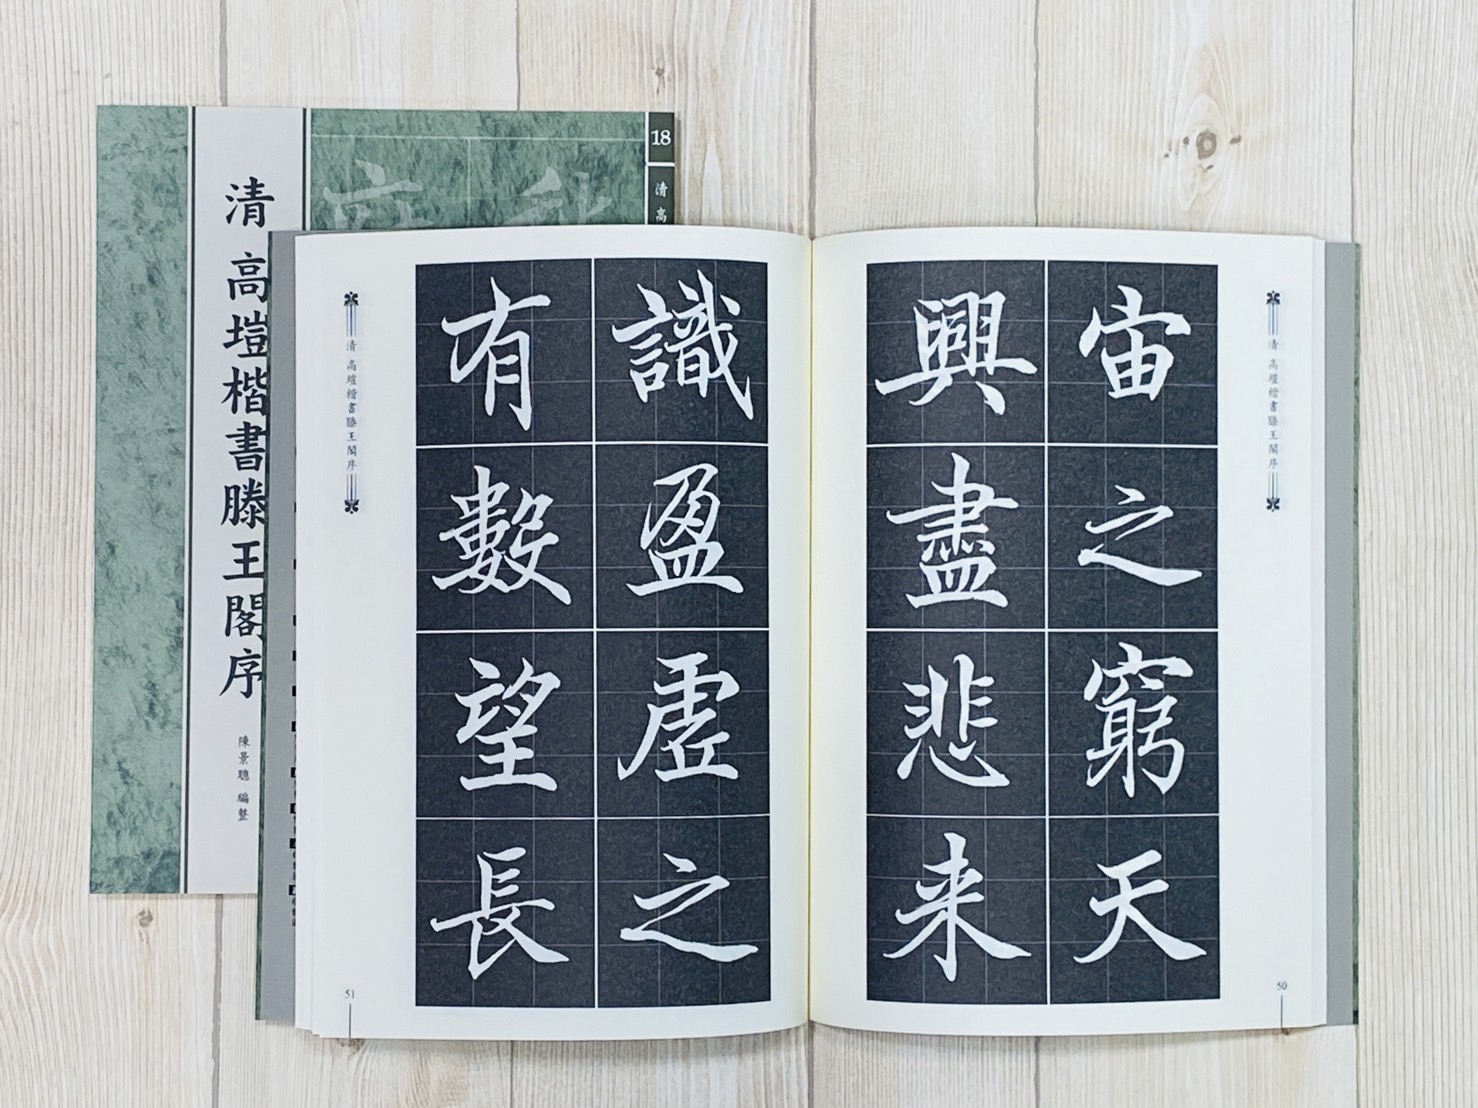 清 高塏楷書滕王閣序
陳景聰 編整
18
清 高
清 高塏楷書滕王閣序
宙之窮天
興盡悲来
50
識盈虛之
有數望長
清 高塏楷書滕王閣序
51